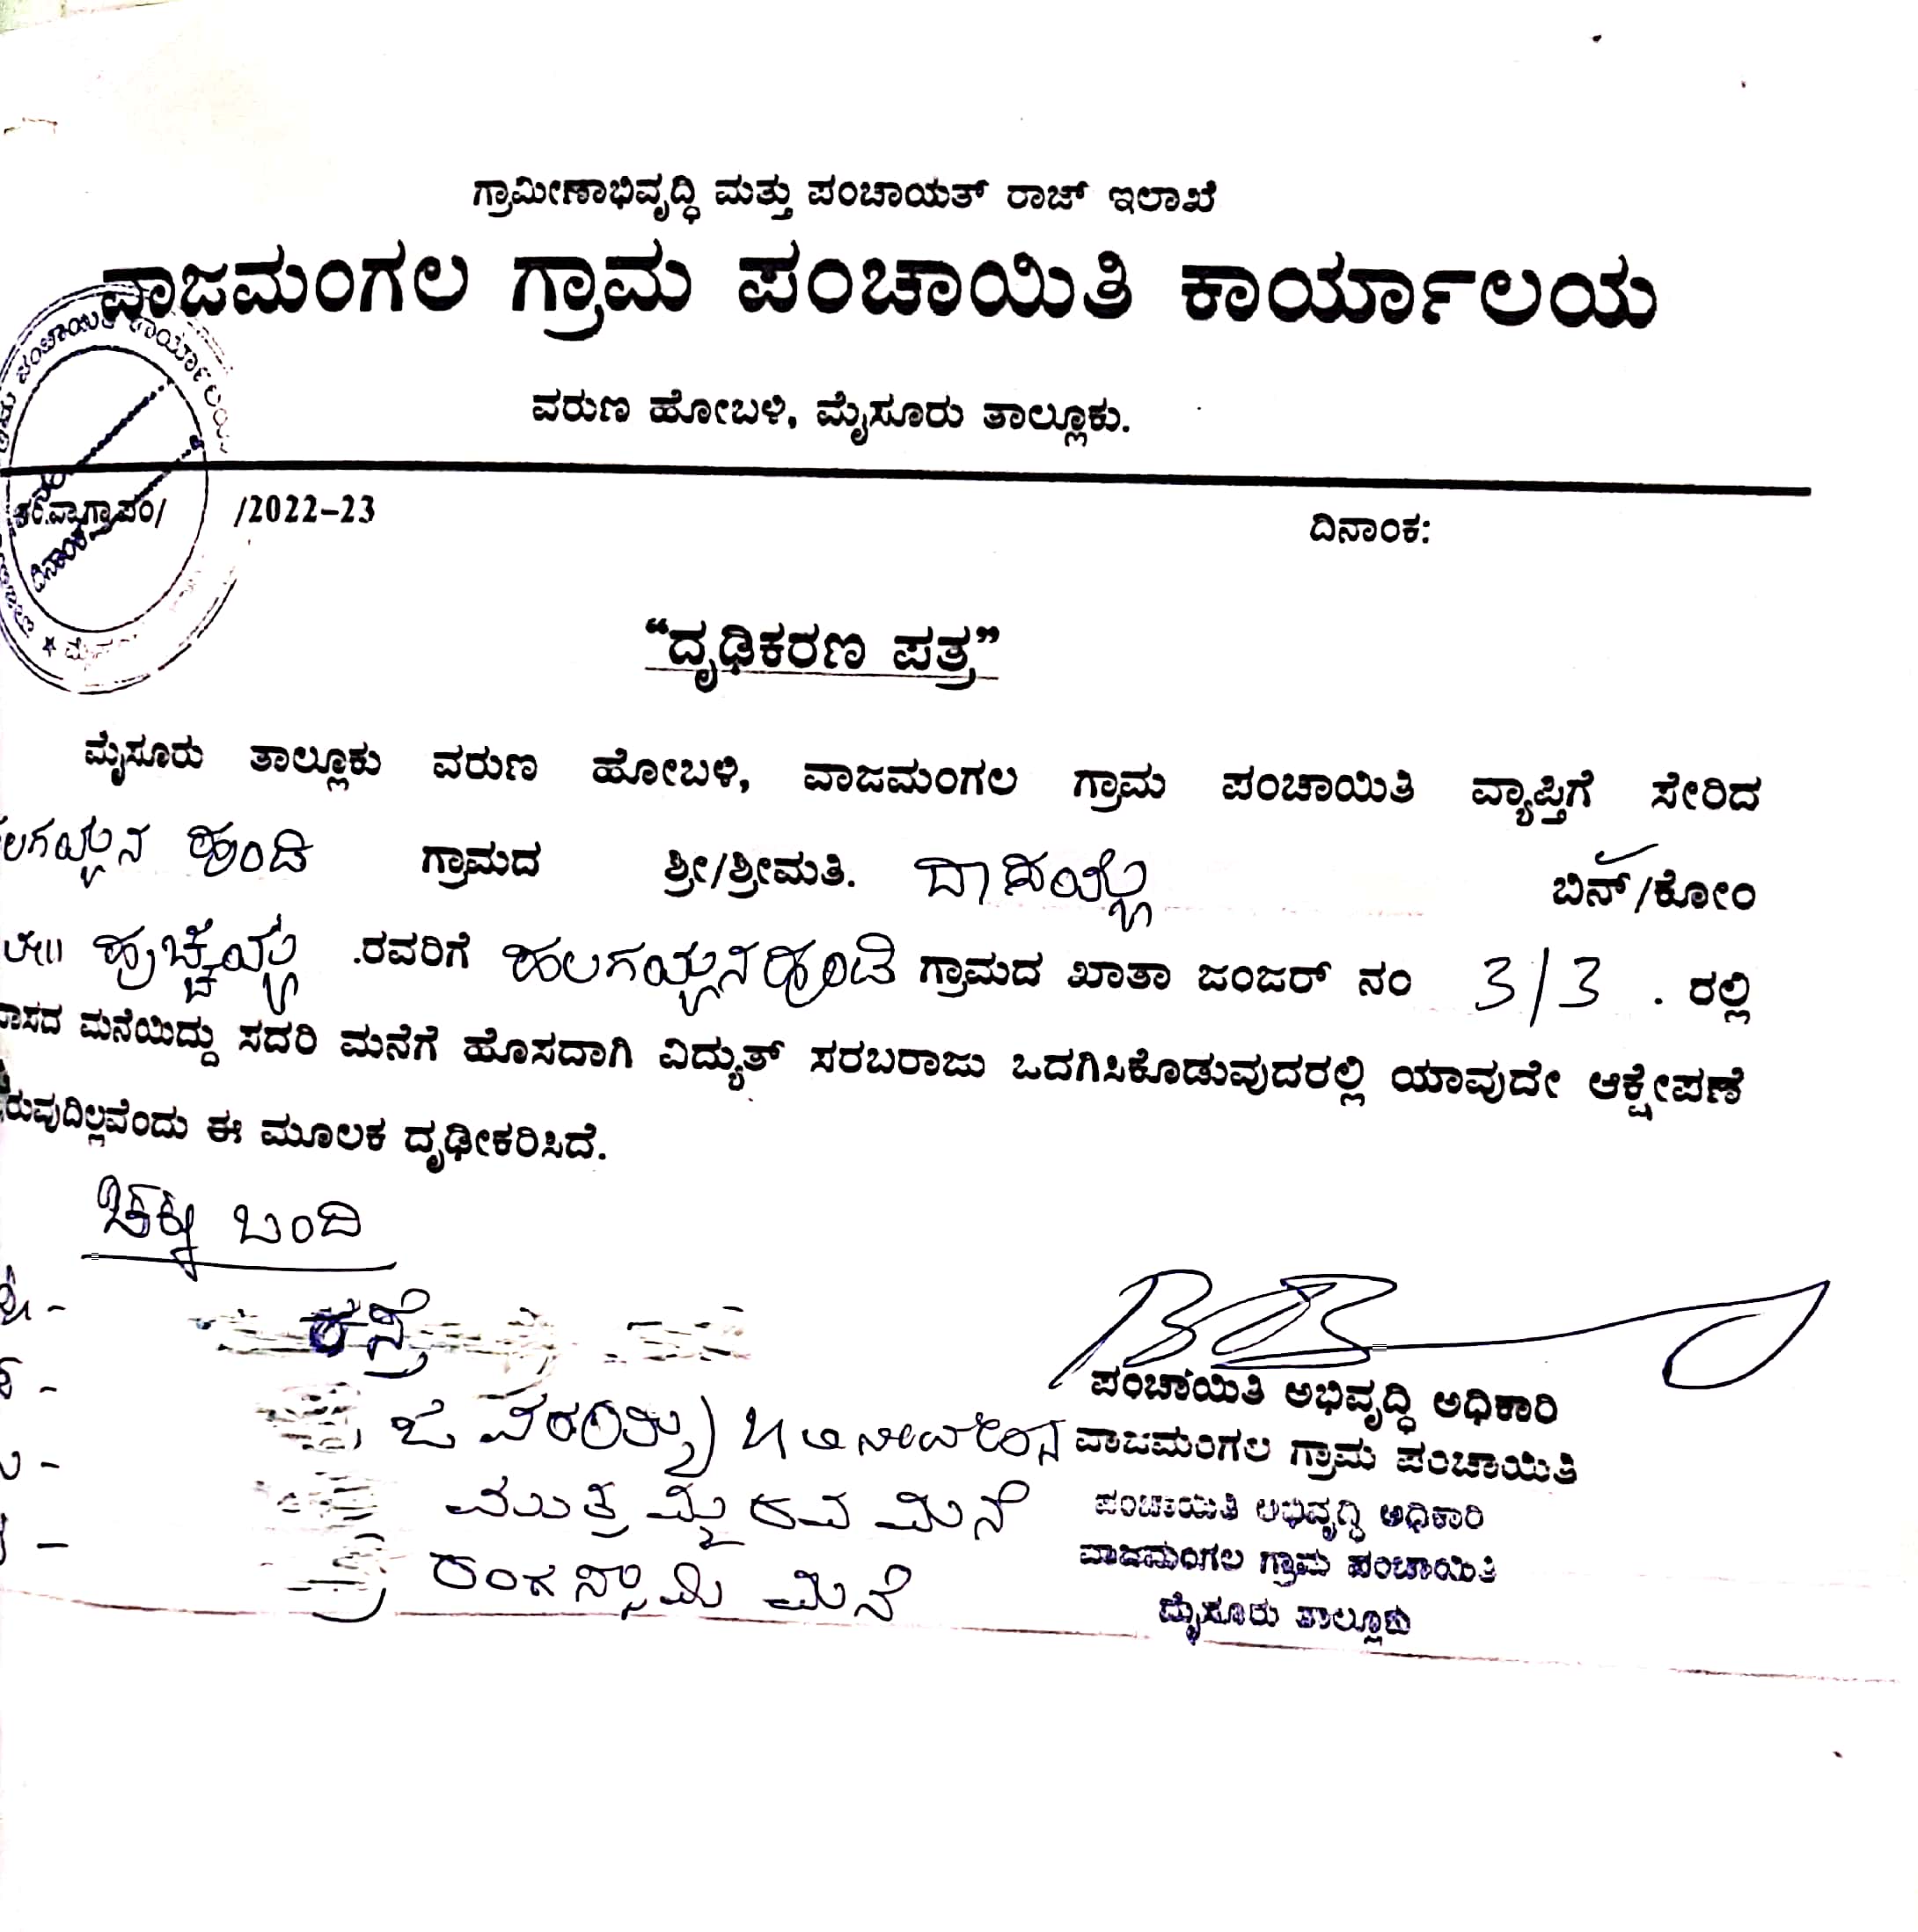 ಗ್ರಾಮೀಣಾಭಿವೃದ್ಧಿ ಮತ್ತು ಪಂಚಾಯತ್ ರಾಜ್ ಇಲಾಖೆ
ವಾಜಮಂಗಲ ಗ್ರಾಮ ಪಂಚಾಯಿತಿ ಕಾರ್ಯಾಲಯ
ಪಂಚಾಯಿತಿ ಕಾರ್ಯಾಲಯ
ವರುಣ ಹೋಬಳಿ, ಮೈಸೂರು ತಾಲ್ಲೂಕು.
/2022-23 ದಿನಾಂಕ:
ದಿನಾಂಕ
“ದೃಢಿಕರಣ ಪತ್ರ”
ಮೈಸೂರು ತಾಲ್ಲೂಕು ವರುಣ ಹೋಬಳಿ, ವಾಜಮಂಗಲ ಗ್ರಾಮ ಪಂಚಾಯಿತಿ ವ್ಯಾಪ್ತಿಗೆ ಸೇರಿದ
ಲಗಯ್ಯನ ಹುಂಡಿ ಗ್ರಾಮದ ಶ್ರೀ/ಶ್ರೀಮತಿ. ದಾಸಯ್ಯ ಬಿನ್/ಕೋಂ
ಲೇ॥ ಹುಚ್ಚಯ್ಯ .ರವರಿಗೆ ಹಲಗಯ್ಯನಹುಂಡಿ ಗ್ರಾಮದ ಖಾತಾ ಜಂಜರ್ ನಂ 3/3 . ರಲ್ಲಿ
ವಾಸದ ಮನೆಯಿದ್ದು ಸದರಿ ಮನೆಗೆ ಹೊಸದಾಗಿ ವಿದ್ಯುತ್ ಸರಬರಾಜು ಒದಗಿಸಿಕೊಡುವುದರಲ್ಲಿ ಯಾವುದೇ ಆಕ್ಷೇಪಣೆ
ರುವುದಿಲ್ಲವೆಂದು ಈ ಮೂಲಕ ದೃಢೀಕರಿಸಿದೆ.
ಚಕ್ಕು ಬಂದಿ
ರಸ್ತೆ
ಪಂಚಾಯಿತಿ ಅಭಿವೃದ್ಧಿ ಅಧಿಕಾರಿ
ವಾಜಮಂಗಲ ಗ್ರಾಮ ಪಂಚಾಯಿತಿ
ಮನೆ
ಪಂಚಾಯಿತಿ ಅಭಿವೃದ್ಧಿ ಅಧಿಕಾರಿ
ವಾಜಮಂಗಲ ಗ್ರಾಮ ಪಂಚಾಯಿತಿ
ರಂಗಸ್ವಾಮಿ ಮನೆ
ಮೈಸೂರು ತಾಲ್ಲೂಕು